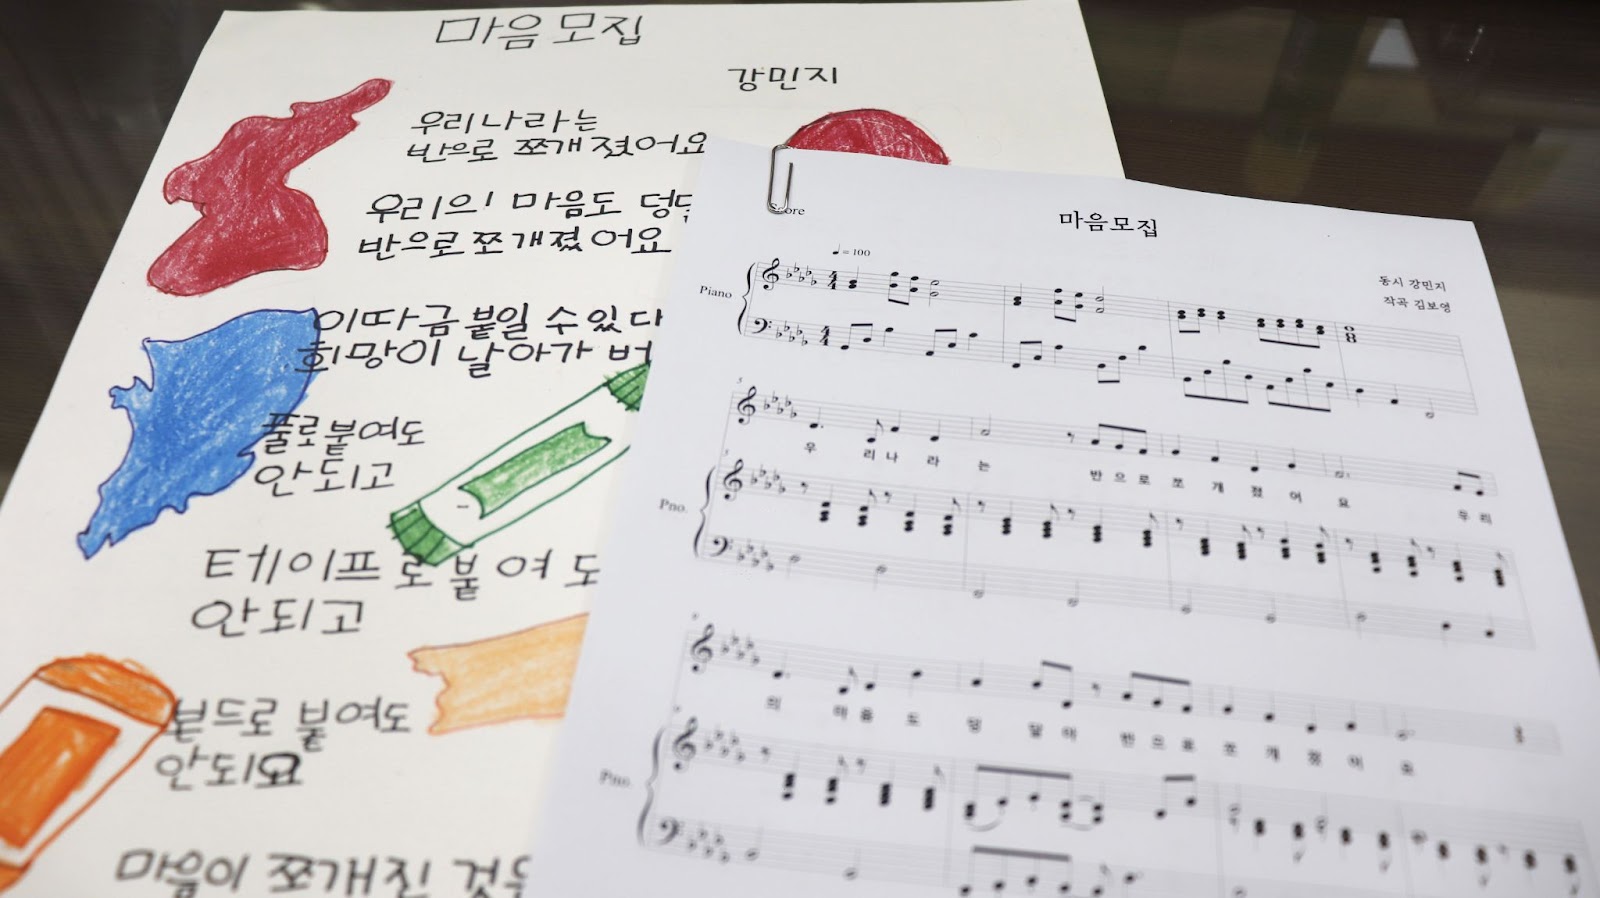 마음모집
강민지
우리나라는
반으로 쪼개졌어요
우리의 마음도
반으로 쪼개졌어요
이따금 붙일 수 있다
희망이 날아가 버
풀로 붙여도
안되고
테이프로 붙여도
안되고
본드로 붙여도
안되요
마음이 쪼개진
Score
마음모집
♩= 100
동시 강민지
작곡 김보영
Piano
5
우 리 나 라 는 반 으 로 쪼 개 졌 어 요 우 리
Pno.
의 마 음 도 덩 달 아 반 으 로 쪼 개 졌 어 요
Pno.